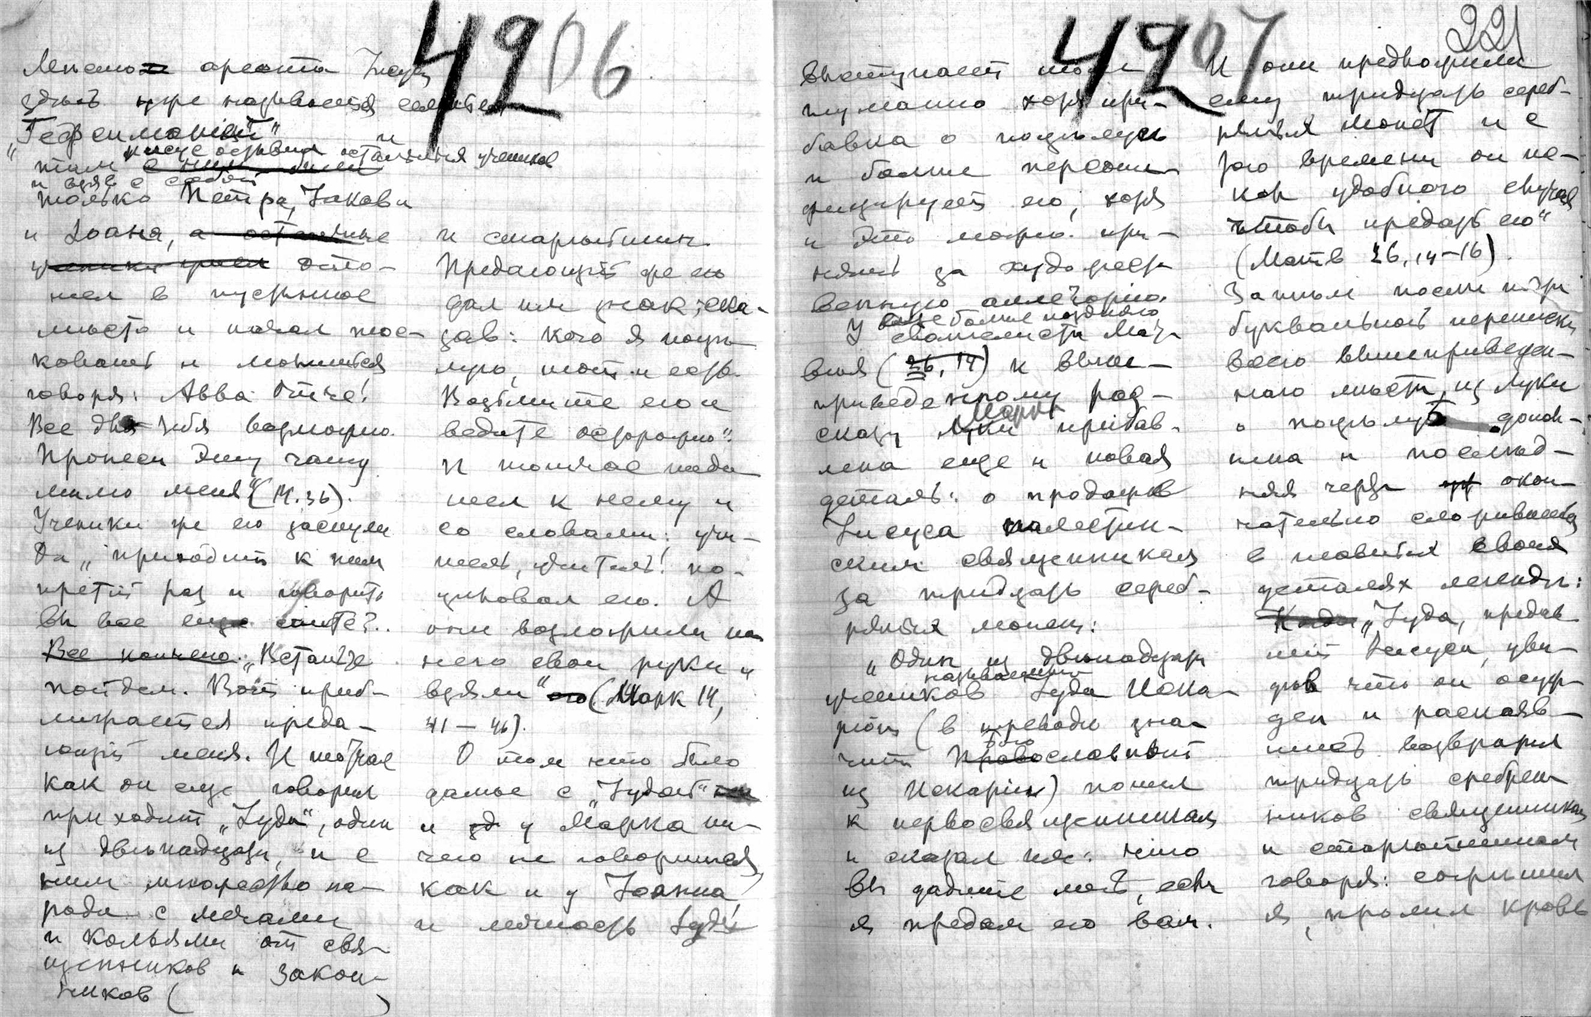 4206
Местом ареста Иисуса
здесь уже называется селение
„Гефсимания" и
там Иисус оставил остальных учеников
и взяв с собой
только Петра, Иакова
и Иоана, а остальные
ученики ото-
шел в пустынное
место и начал тос-
ковать и молиться
говоря: Авва Отче!
Все для тебя возможно.
Пронеси эту чашу
мимо меня" (14.36).
Ученики же его заснули
„приходит к ним
третий раз и говорит:
вы все еще спите?..
Все кончено. „Встаньте
пойдем. Вот приб-
лижается преда-
ющий меня. И тотчас
как он еще говорил
приходит „Иуда", один
из двенадцати, и с
ним множество на-
рода с мечами
и кольями от свя-
щенников и закон-
ников ( )
и старейшин.
Предающий же его
дал им знак, ска-
зав: кого я поце-
лую, тот и есть.
Возьмите его и
ведите осторожно".
И тотчас подо-
шел к нему и
со словами: учи-
тель, учитель! по-
циловал его. А
они возложили на
него свои руки и
взяли" его (Марк 14,
41—46).
О том что было
далее с „Иудой"
и у Марка ни-
чего не говорится,
как и у Иоанна,
и личность Иуды
4207
221
выступает
туманно хотя при-
бавка о поцелуе
и более персони-
фицирует его, хотя
и это можно при-
нять за художест-
венную аллегорию.
У еще более позднего
евангелиста Мат-
вея (26, 14) к выше-
приведенному рас-
сказу Луки Марка прибав-
лена еще и новая
деталь: о продаже
Иисуса палестин-
ским священникам
за тридцать сереб-
ряных монет:
„Один из двенадцати
учеников называемый Иуда Иска-
риот (в переводе зна-
чит Православный
из Искарии) пошел
к первосвященникам
и сказал им: что
вы дадите мне, если
я предам его вам.
И они предложили
ему тридцать сереб-
ряных монет и с
того времени он ис-
кал удобного случая
чтобы предать его"
(Матв 26, 14—16).
Затем после почти
буквальной переписки
всего вышеприведен-
ного места из Луки
о поцелуе допол-
нена и послед-
няя черта окон-
чательно сформировавшейся
в главных своих
деталях легенды:
Когда „Иуда, предав-
ший Иисуса, уви-
дев что он осуж-
ден и раскаяв-
шись возвратил
тридцать сребрен-
ников священникам
и старейшинам
говоря: согрешил
я, пролил кровь